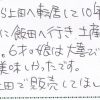 ら上田へ転居して10年
に飯田へ行き土産
。6才の娘は大喜び
美味しかったです。
上田で販売してほし